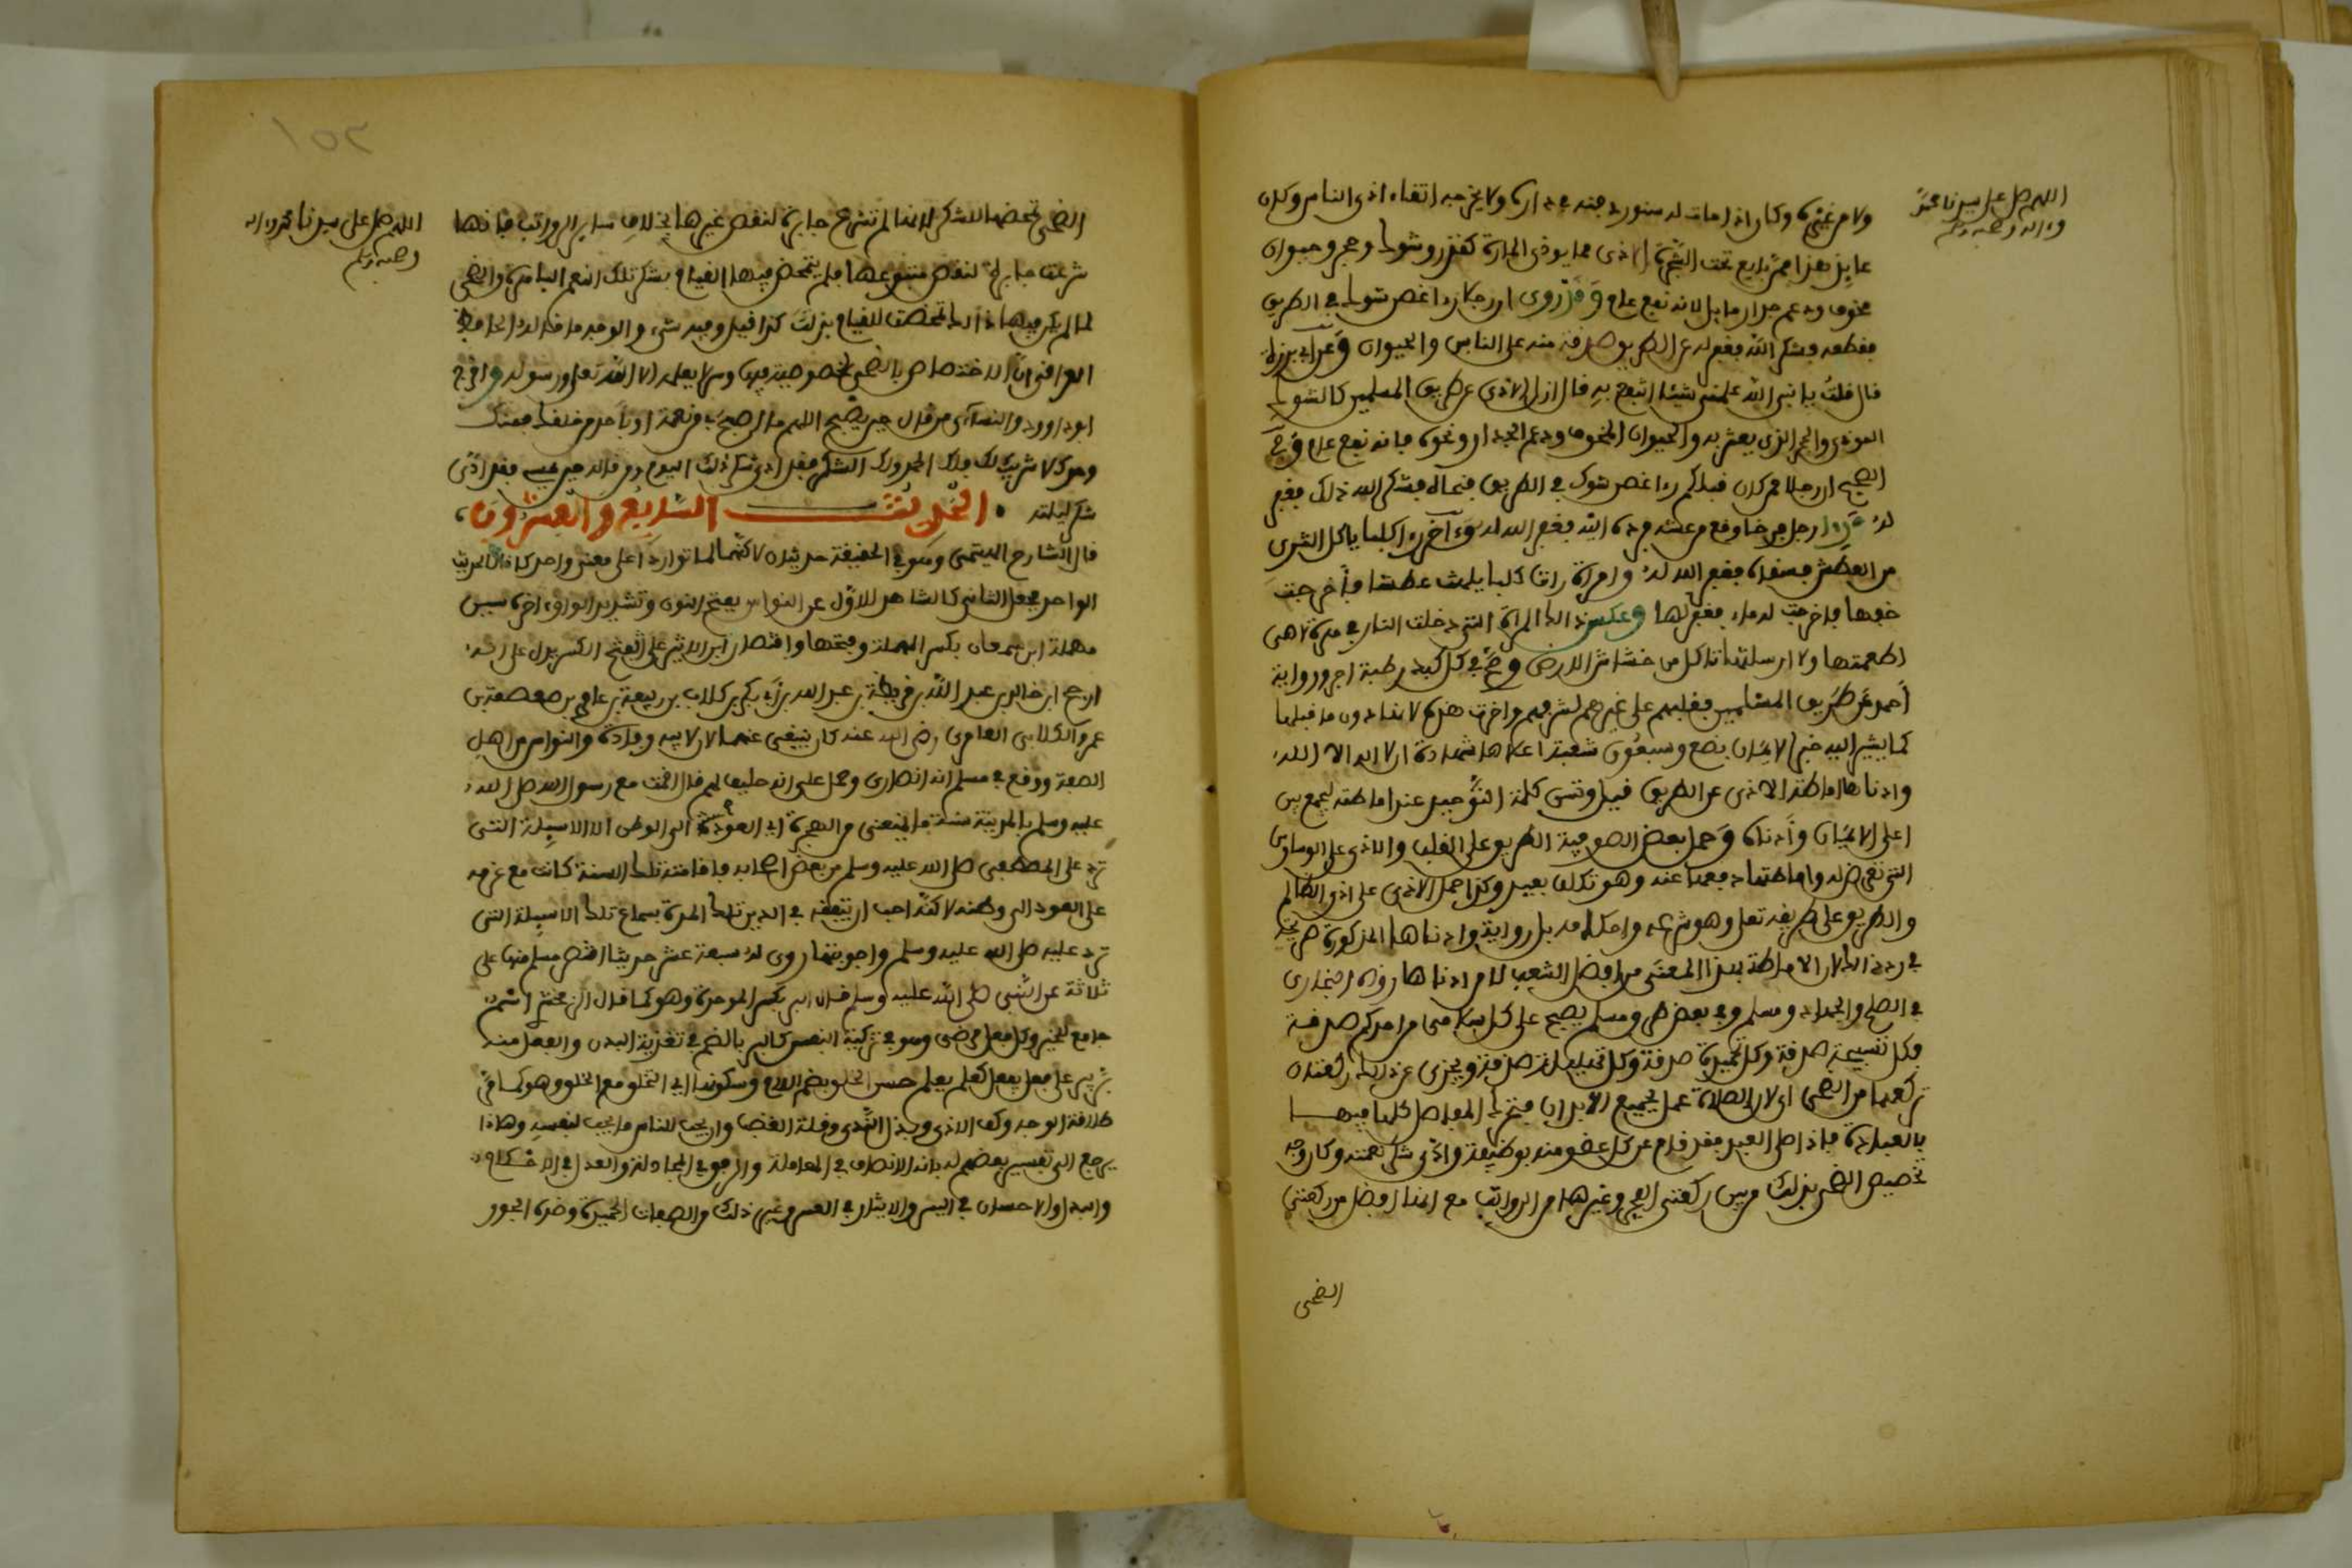 اللهم صل على سيدنا محمد
وءاله وصحبه وسلم
ولا من غيره وكان اذا مات له سنور دفنه في داره ولا يخرجه اتقاء اذى الناس وكان
الاذى مما يوذي المارة كقذر وشوك وحجر وحيوان
مخوف وهدم جدار مايل لانه نفع عام وقد روي ان رجلا راء غصن شوك في الطريق
فقطعه فشكر الله فغفر له عن الطريق صدقة منه على الناس والحيوان وعن ابي برزة
قال قلت يا نبي الله علمني شيئا انتفع به قال ازل الاذى عن طريق المسلمين كالشوك
الموذي والحجر الذي يعثر به والحيوان المخوف وهدم الجدار ونحوه فانه نفع عام وفي
الصحيح ان رجلا ممن كان قبلكم راء غصن شوك في الطريق فنحاه فشكر الله ذلك فغفر
له الله فغفر الله له وءاخر راء كلبا ياكل الثرى
من العطش فسقاه فغفر الله له وامراة رات كلبا يلهث عطشا فاخرجت
خفها فاخرجت له ماء فغفر لها وعكس ذلك المراة التي دخلت النار في هرة لا هي
اطعمتها ولا ارسلتها تاكل من خشاش الارض وفي كل كبد رطبة اجر ورواية
احمد عن طريق المسلمين فغلبهم على غيرهم لشرفهم واخرت هذه لانها دون ما قبلها
كما يشير اليه خبر الايمان بضع وسبعون شعبة اعلاها شهادة ان لا اله الا الله
وادناها اماطة الاذى عن الطريق قيل وتسن كلمة التوحيد عند اماطته ليجمع بين
اعلى الايمان وادناه وحمل بعض الصوفية الطريق على القلب والاذى على الوساوس
التي تعرض له واماطتها دفعها عنه وهو تكلف بعيد وكذا حمل الاذى على اذى الظالم
والطريق على طريقه تعلى وهو شرعه واحكامه بل رواية وادناها المذكورة صريحة
في رد ذلك لان الاماطة بهذا المعنى من افضل الشعب لا من ادناها رواه البخاري
في الصلح والجهاد ومسلم وفي بعض طرق مسلم يصبح على كل سلامى من احدكم صدقة
فكل تسبيحة صدقة وكل تحميدة صدقة وكل تهليلة صدقة ويجزى عن ذلك ركعتان
يركعهما من الضحى اي لان الصلاة عمل بجميع الابدان فتتحرك المفاصل كلها فيها
بالعبادة فاذا صلى العبد فقد قام عن كل عضو منه بوظيفة وادى شكر نعمته وكان وجه
تخصيص الضحى بذلك من بين ركعتي الفجر وغيرها من الرواتب مع انها افضل من ركعتي
الضحى
اللهم صل على سيدنا محمد وءاله
وصحبه وسلم
الضحى تمحضها للشكر لانها لم تشرع جابرة لنقص غيرها بخلاف ساير الرواتب فانها
شرعت جابرة لنقص متبوعها فلم يتمحض فيها القيام بشكر تلك النعم الباهرة والضحى
لما لم يكن فيها ذلك تمحضت للقيام بذلك كذا قيل وفيه شيء والوجه ما قاله الحافظ
العراقي ان الاختصاص بالضحى لخصوصية فيها وسر لا يعلمه الا الله تعلى ورسوله واخرج
ابو داوود والنساءي من قال حين يصبح اللهم ما اصبح بي من نعمة او باحد من خلقك فمنك
وحدك لا شريك لك فلك الحمد ولك الشكر فقد ادى شكر ذلك اليوم ومن قاله حين يمسي فقد ادى
شكر ليلته • الحديث السابع والعشرون
قال الشارح الهيتمي وهو في الحقيقة حديثان لاكنهما لما تواردا على معنى واحد كانا كالحديث
الواحد فجعل الثاني كالشاهد للاول عن النواس بفتح النون وتشديد الواو واخره سين
مهملة ابن سمعان بكسر المهملة وفتحها واقتصار ابن الاثير على الفتح الكسر يدل على انه
ارجح ابن خالد بن عبد الله بن قريظة بن عبد الله بن ابي بكر بن كلاب بن ربيعة بن عامر بن صعصعة بن
عمرو الكلابي العامري رضي الله عنه كان ينبغي عنهما لان لابيه وفادة والنواس من اهل
الصفة ووقع في مسلم انه انصاري وحمل على انه حليف لهم قال اقمت مع رسول الله صلى الله
عليه وسلم بالمدينة سنة ما يمنعني من الهجرة اي العودة الى الوطن الا الاسيلة التي
ترد على المصطفى صلى الله عليه وسلم من بعض اصحابه فاقامته تلك السنة كانت مع عزمه
على العود الى وطنه لاكنه احب ان يتفقه في الدين تلك المدة بسماع تلك الاسيلة التي
ترد عليه صلى الله عليه وسلم واجوبتها روي له سبعة عشر حديثا اقتصر مسلم منها على
ثلاثة عن النبي صلى الله عليه وسلم قال البر بكسر الموحدة وهو كما قال الزمخشري اسم
جامع للخير وكل فعل مرضي وهو في تزكية النفس كالبر بالضم في تغذية البدن والفعل منه
بر يبر على فعل يفعل كعلم يعلم حسن الخلق بضم اللام وسكونها اي التخلق مع الخلق وهو كما مر
طلاقة الوجه وكف الاذى وبذل الندى وقلة الغضب وان يحب للناس ما يحب لنفسه وهاذا
يرجع الى تفسير بعضهم له بانه الانصاف في المعاملة والرفق في المجادلة والعدل في الاحكام
والبذل والاحسان في اليسر والايثار في العسر وغير ذلك من الصفات الحميدة وضده الفجور